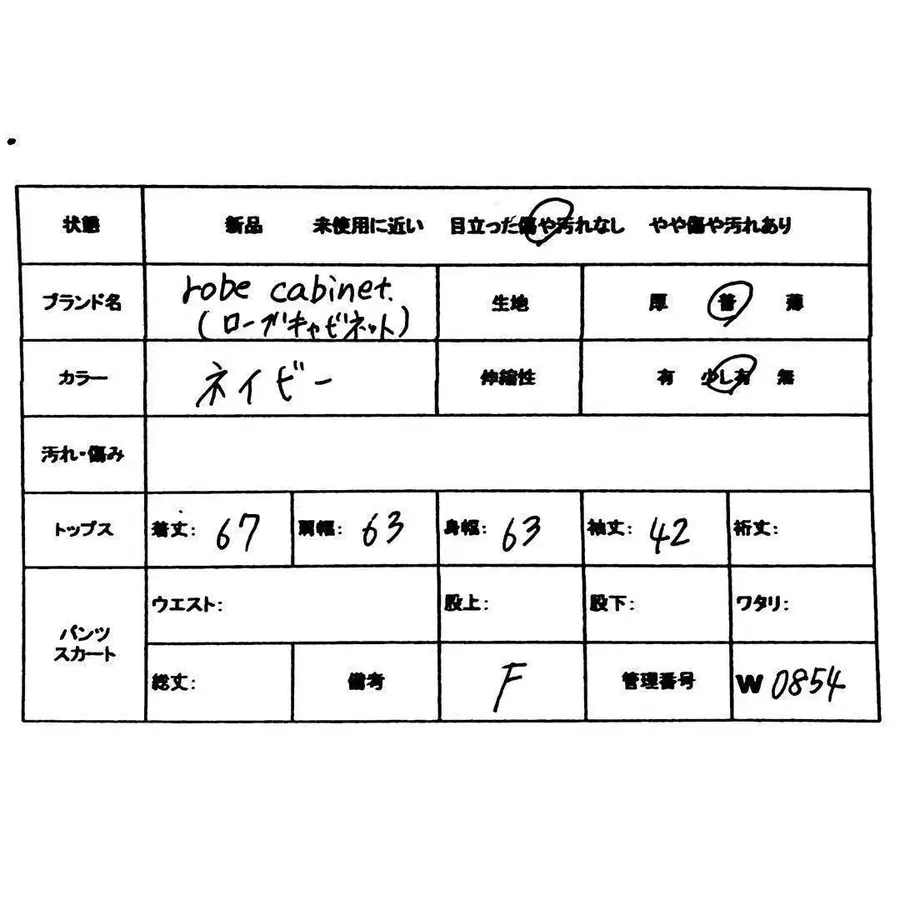 状態 新品 未使用に近い 目立った傷や汚れなし やや傷や汚れあり
ブランド名 robe cabinet. 生地 厚 普 薄
(ローブキャビネット)
カラー ネイビー 伸縮性 有 少し有 無
汚れ・傷み
トップス 着丈: 67 肩幅: 63 身幅: 63 袖丈: 42 裄丈:
パンツ
スカート
ウエスト: 股上: 股下: ワタリ:
総丈: 備考 F 管理番号 W 0854